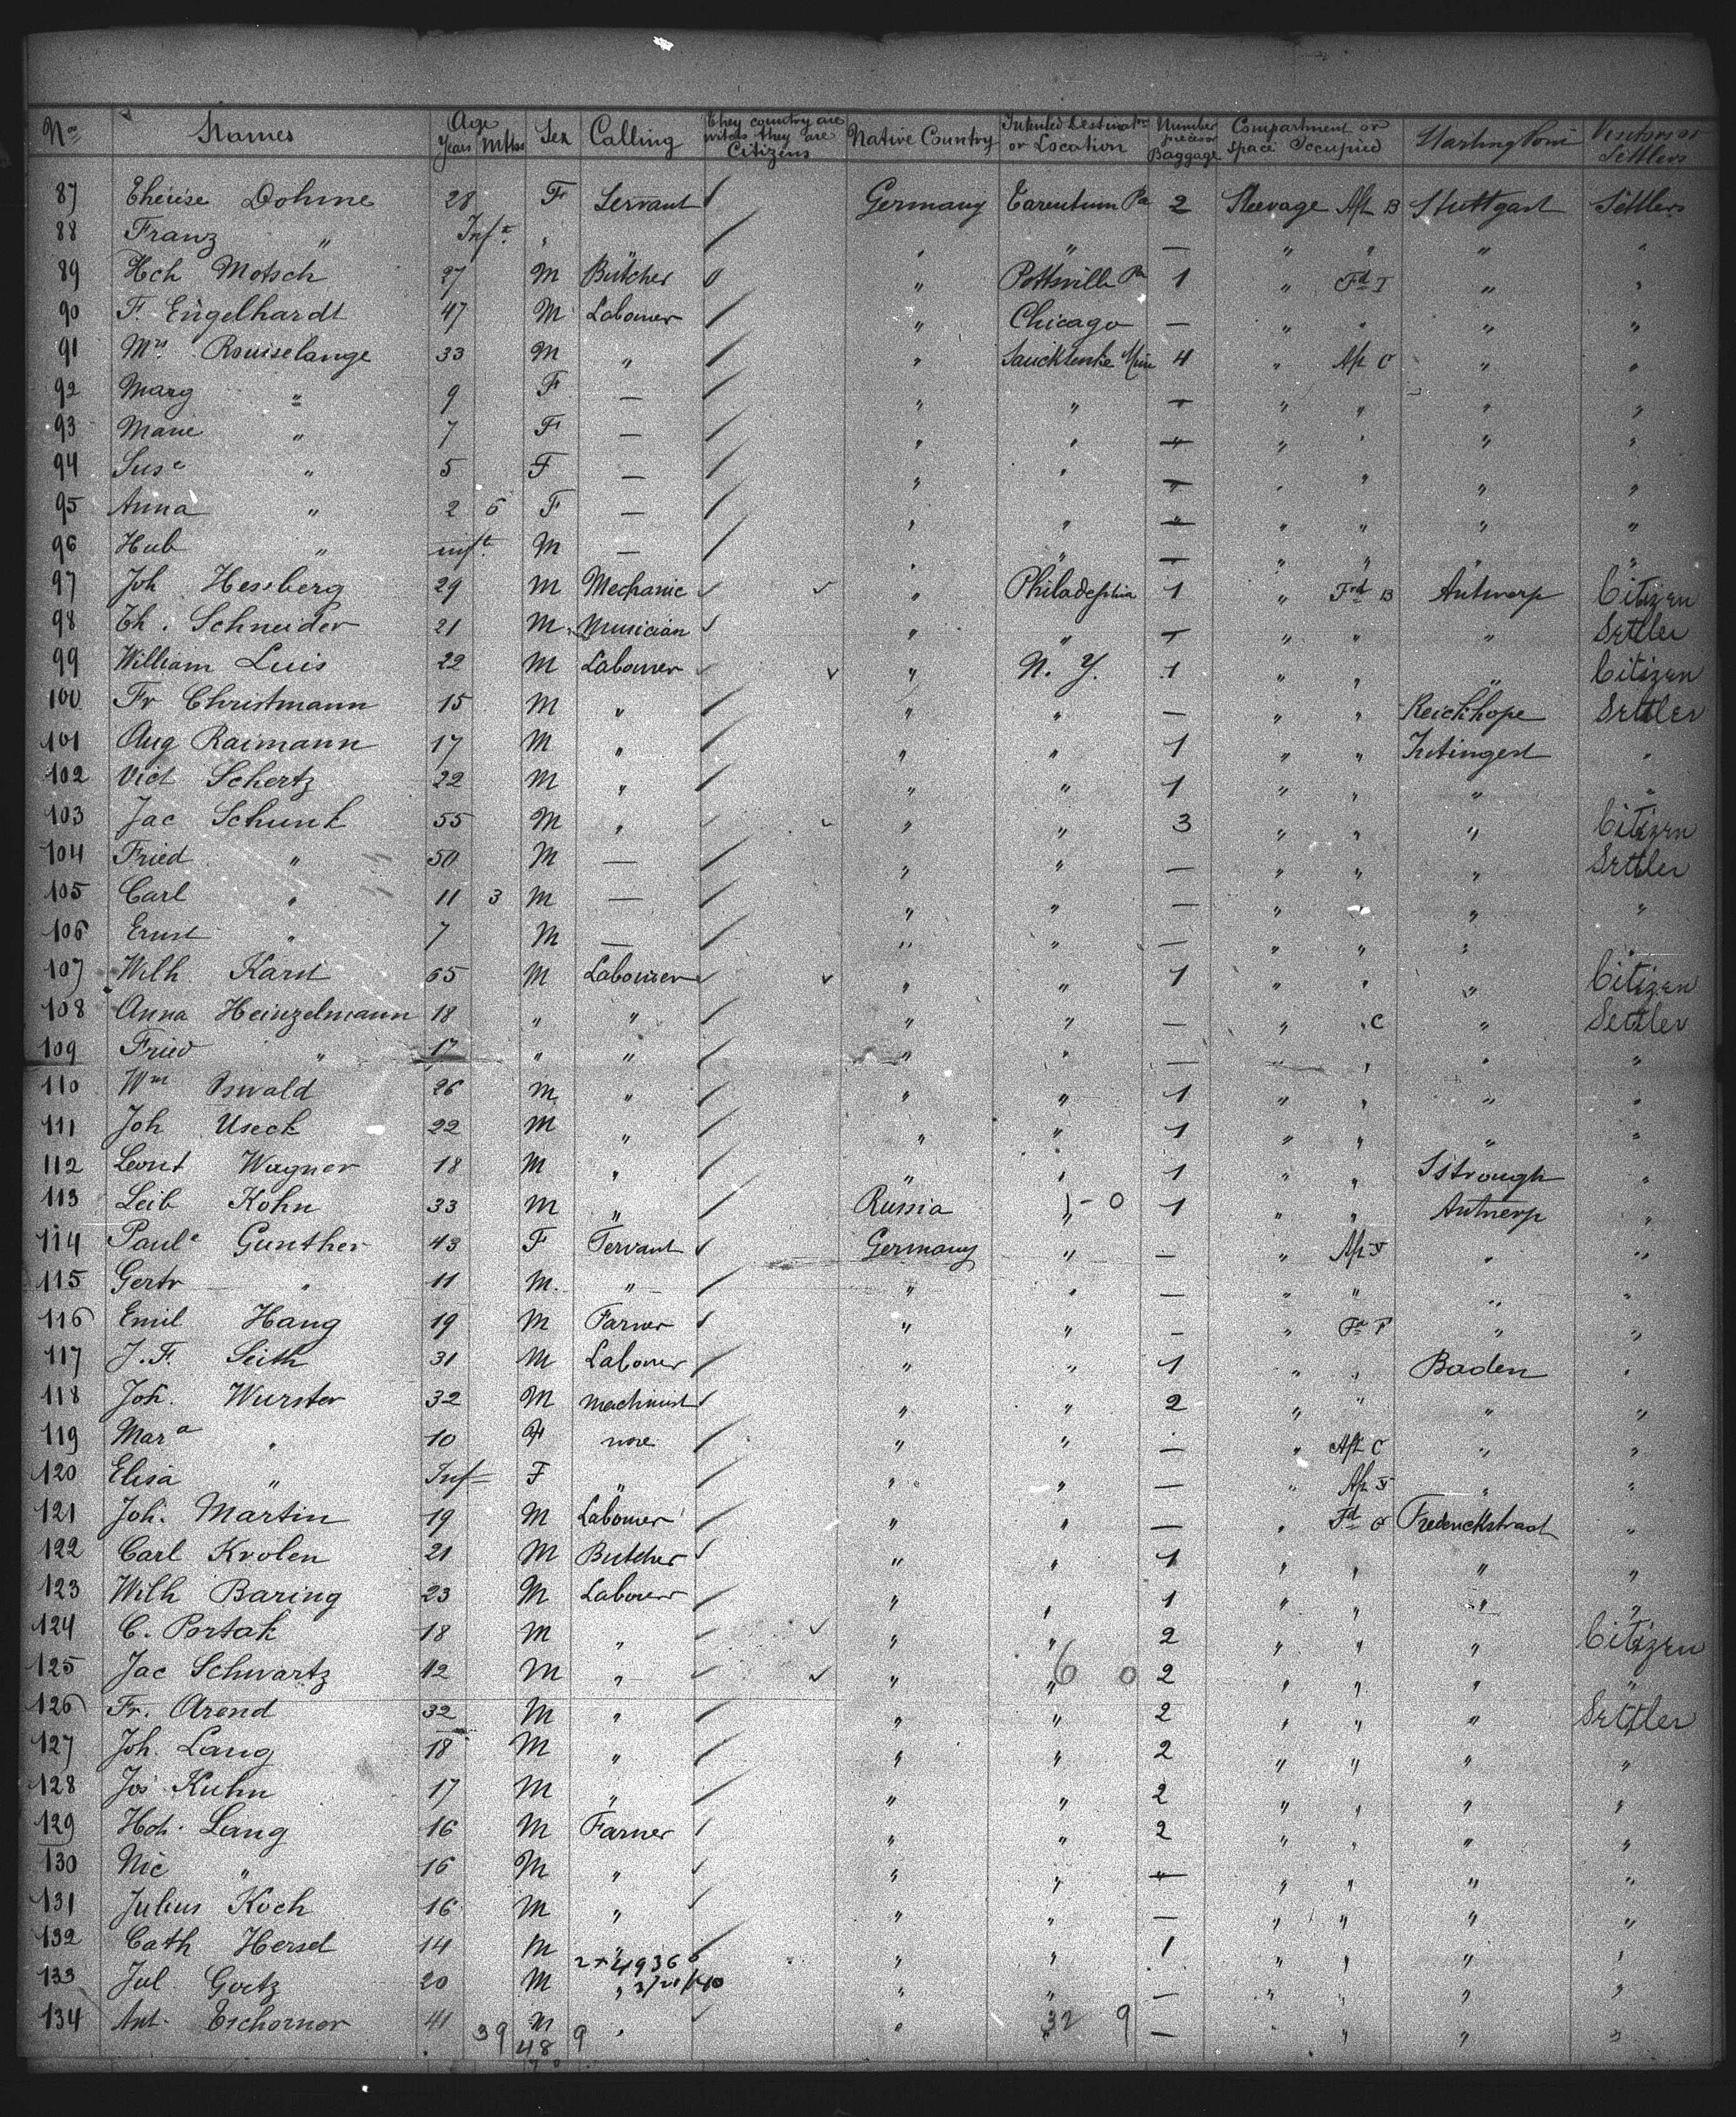 Nos Names Age Years Mths Sex Calling They country are witch they are Citizens Native Country Intented Destination or Location Number pieces of Baggage Compartment or Space Occupied Starting Point Visitors or Settlers
87 Therése Dohme 28 F Servant Germany Tarentum Pa 2 Steerage Aft B Stuttgart Settlers
88 Franz " Inft " " " — " " " "
89 Hch Motsch 27 M Butcher " Pottsville Pa 1 " Fd I " "
90 F. Engelhardt 47 M Labourer " Chicago — " " " "
91 Mrs Rouiselange 33 M " " 4 " Aft C " "
92 Marg " 9 F — " " — " " " "
93 Marie " 7 F — " " " " " " "
94 Suse " 5 F — " " " " " " "
95 Anna " 2 6 F — " " " " " " "
96 Hub " inft. M — " " — " " " "
97 Joh Hessberg 29 M Mechanic " Philadephia 1 " Frd B Antwerp Citizen
98 Th. Schneider 21 M Musician " " — " " " Settler
99 William Luis 22 M Labourer " N. Y. 1 " " " Citizen
100 Fr Christmann 15 M " " " — " " Reichhope Settler
101 Aug Raimann 17 M " " " 1 " " "
102 Vict Schertz 22 M " " " 1 " " " "
103 Jac Schunk 55 M " " " 3 " " " Citizen
104 Fried " 50 M — " " — " " " Settler
105 Carl " 11 3 M — " " — " " " "
106 Ernst " 7 M — " " — " " "
107 Wilh. Karst 65 M Labourer " " 1 " " " Citizen
108 Anna Heinzelmann 18 " " " " — " " C " Settler
109 Fried " 17 " " " " — " " " "
110 Wm Oswald 26 M " " " 1 " " " "
111 Joh Useck 22 M " " " 1 " " " "
112 Leont Wagner 18 M " " " 1 " " Istrough "
113 Leib Kohn 33 M " Russia " 1-0 1 " " Antwerp "
114 Paule Gunther 43 F Servant Germany " — " Aft F " "
115 Gertr " 11 M. " " " — " " " "
116 Emil Hang 19 M Farmer " " — " Fd F " "
117 J. F. Seith 31 M Labourer " " 1 " " Baden "
118 Joh. Wurster 32 M Machinist " " 2 " " " "
119 Mara " 10 F none " " — " Aft C " "
120 Elisa " Inf F " " " — " Aft F " "
121 Joh. Martin 19 M Labourer " " — " Fd C Frederickstradt "
122 Carl Krolen 21 M Butcher " " 1 " " " "
123 Wilh Baring 23 M Labourer " " 1 " " " "
124 C. Portak 18 M " " " 2 " " " Citizen
125 Jac Schwartz 42 M " " " 6 0 2 " " " "
126 Fr. Arend 32 M " " " 2 " " " Settler
127 Joh. Lang 18 M " " " 2 " " " "
128 Jos Kuhn 17 M " " " 2 " " " "
129 Hch. Lang 16 M Farmer " " 2 " " " "
130 Nic " 16 M " " " " " " " "
131 Julius Koch 16 M " " " — " " " "
132 Cath Hersel 14 M " " " 1 " " " "
133 Jul. Goetz 20 M " " " — " " " "
134 Ant. Eschorner 41 M " " " 32 9 — " " " "
39 48 9